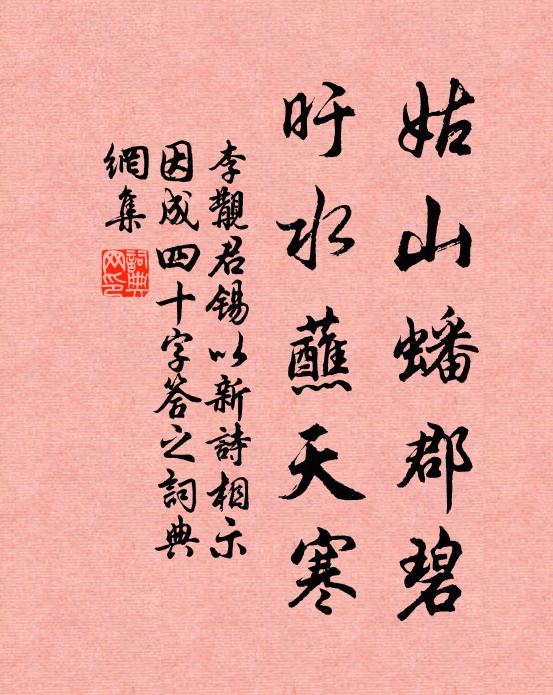 姑山蟠郡碧
盱水蘸天寒
李觀君錫以新詩相示
因成四十字答之詞典
網集
詞典網印